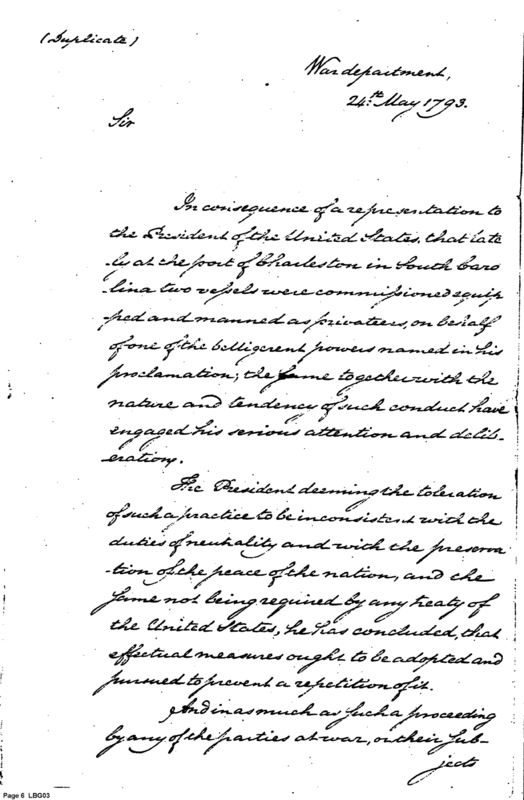 (Duplicate)
War department,
24th. May 1793.
Sir
In consequence of a representation to
the President of the United States, that late
-ly at the port of Charleston in South Caro
-lina two vessels were commissioned equip
-ped and manned as privateers, on behalf
of one of the belligerent powers named in his
proclamation; the same together with the
nature and tendency of such conduct have
engaged his serious attention and delib-
-erations.
The President deeming the toleration
of such a practice to be inconsistent with the
duties of neutrality and with the preserva
-tion of the peace of the nation, and the
same not being required by any treaty of
the United States, he has concluded, that
effectual measures ought to be adopted and
pursued to prevent a repetition of it.
And in as much as such a proceeding
by any of the parties at war, or their sub-
jects
Page 6 LBG03